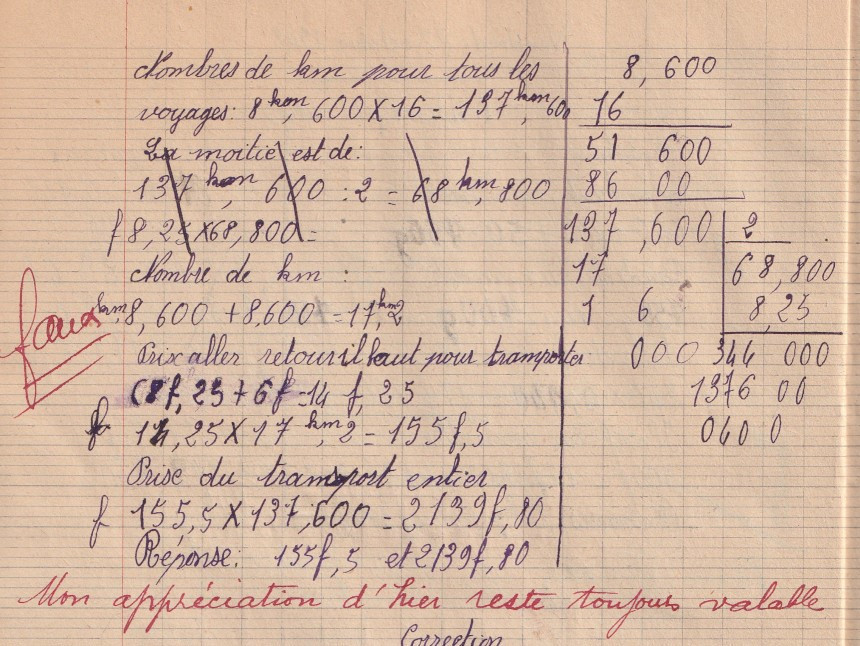 Nombres de km pour tous les
voyages: 8 km, 600 X 16 = 137 km, 600
La moitié est de:
137 km, 600 : 2 = 68 km, 800
f 8,25 X 68,800 =
Nombre de km :
km 8,600 + 8,600 = 17, km 2
Prix aller retour il faut pour tramporter
(8f,25 + 6f = 14 f, 25
fo 14,25 X 17 km, 2 = 155f,5
Prise du transport entier
f 155,5 X 137,600 = 2139f,80
Réponse: 155f,5 et 2139f,80
faux
8,600
16
51 600
86 00
137,600 2
17 68,800
1 6 8,25
000 344 000
1376 00
0400
Mon appréciation d'hier reste toujours valable
Correction